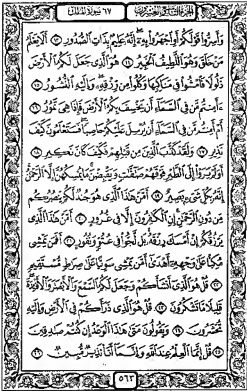 الجزء التاسع والعشرون ٦٧ سورة الملك
وَأَسِرُّوا۟ قَوْلَكُمْ أَوِ ٱجْهَرُوا۟ بِهِۦٓ إِنَّهُۥ عَلِيمٌۢ بِذَاتِ ٱلصُّدُورِ ١٣ أَلَا يَعْلَمُ
مَنْ خَلَقَ وَهُوَ ٱللَّطِيفُ ٱلْخَبِيرُ ١٤ هُوَ ٱلَّذِى جَعَلَ لَكُمُ ٱلْأَرْضَ
ذَلُولًا فَٱمْشُوا۟ فِى مَنَاكِبِهَا وَكُلُوا۟ مِن رِّزْقِهِۦ وَإِلَيْهِ ٱلنُّشُورُ ١٥
ءَأَمِنتُم مَّن فِى ٱلسَّمَآءِ أَن يَخْسِفَ بِكُمُ ٱلْأَرْضَ فَإِذَا هِىَ تَمُورُ ١٦
أَمْ أَمِنتُم مَّن فِى ٱلسَّمَآءِ أَن يُرْسِلَ عَلَيْكُمْ حَاصِبًا فَسَتَعْلَمُونَ كَيْفَ
نَذِيرِ ١٧ وَلَقَدْ كَذَّبَ ٱلَّذِينَ مِن قَبْلِهِمْ فَكَيْفَ كَانَ نَكِيرِ ١٨
أَوَلَمْ يَرَوْا۟ إِلَى ٱلطَّيْرِ فَوْقَهُمْ صَٰٓفَّٰتٍ وَيَقْبِضْنَ مَا يُمْسِكُهُنَّ إِلَّا ٱلرَّحْمَٰنُ
إِنَّهُۥ بِكُلِّ شَىْءٍۭ بَصِيرٌ ١٩ أَمَّنْ هَٰذَا ٱلَّذِى هُوَ جُندٌ لَّكُمْ يَنصُرُكُم
مِّن دُونِ ٱلرَّحْمَٰنِ إِنِ ٱلْكَٰفِرُونَ إِلَّا فِى غُرُورٍ ٢٠ أَمَّنْ هَٰذَا ٱلَّذِى
يَرْزُقُكُمْ إِنْ أَمْسَكَ رِزْقَهُۥ بَل لَّجُّوا۟ فِى عُتُوٍّ وَنُفُورٍ ٢١ أَفَمَن يَمْشِى
مُكِبًّا عَلَىٰ وَجْهِهِۦٓ أَهْدَىٰٓ أَمَّن يَمْشِى سَوِيًّا عَلَىٰ صِرَٰطٍ مُّسْتَقِيمٍ ٢٢
قُلْ هُوَ ٱلَّذِىٓ أَنشَأَكُمْ وَجَعَلَ لَكُمُ ٱلسَّمْعَ وَٱلْأَبْصَٰرَ وَٱلْأَفْـِٔدَةَ
قَلِيلًا مَّا تَشْكُرُونَ ٢٣ قُلْ هُوَ ٱلَّذِى ذَرَأَكُمْ فِى ٱلْأَرْضِ وَإِلَيْهِ
تُحْشَرُونَ ٢٤ وَيَقُولُونَ مَتَىٰ هَٰذَا ٱلْوَعْدُ إِن كُنتُمْ صَٰدِقِينَ ٢٥
قُلْ إِنَّمَا ٱلْعِلْمُ عِندَ ٱللَّهِ وَإِنَّمَآ أَنَا۠ نَذِيرٌ مُّبِينٌ ٢٦
٥٦٣